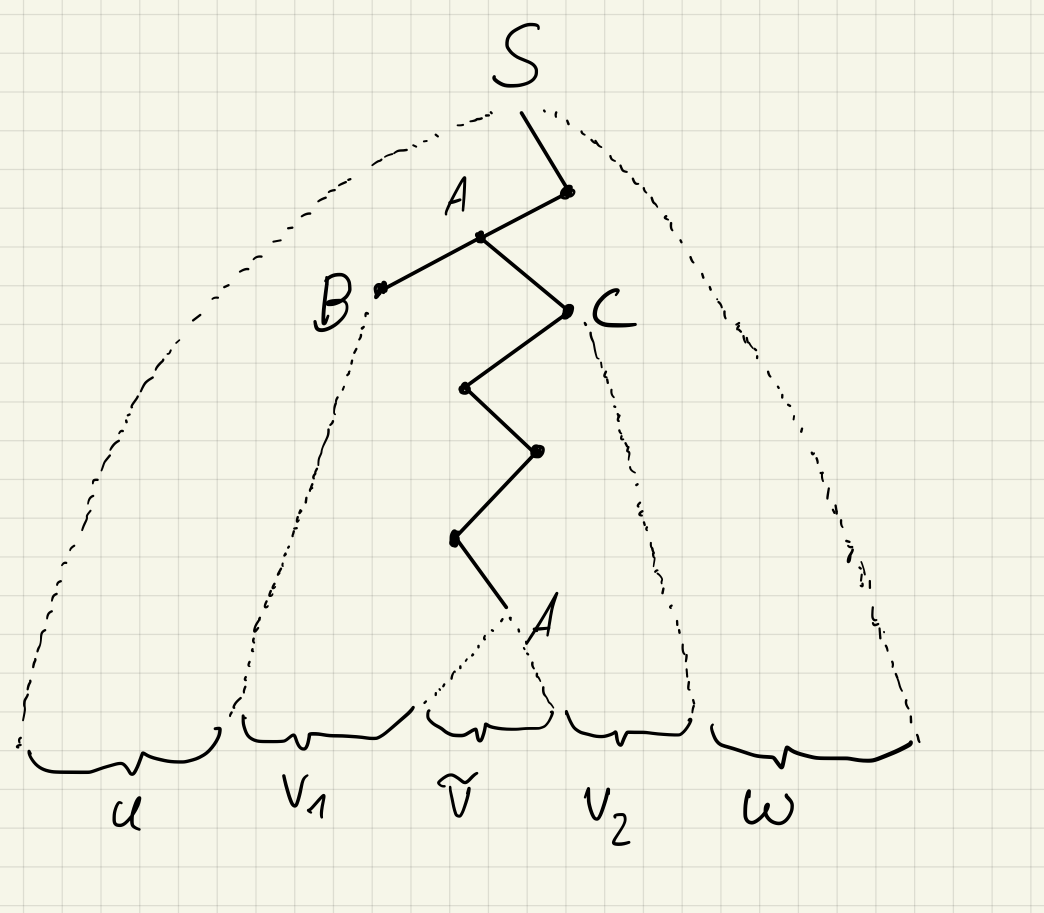 S
A
B
C
A
u v₁ ṽ v₂ w